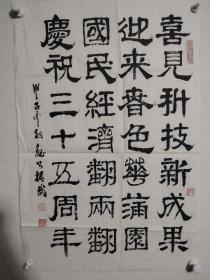 喜見科技新成果
迎来春色華蒲園
國民經濟翻兩翻
慶祝三十五周年
甲子年秋